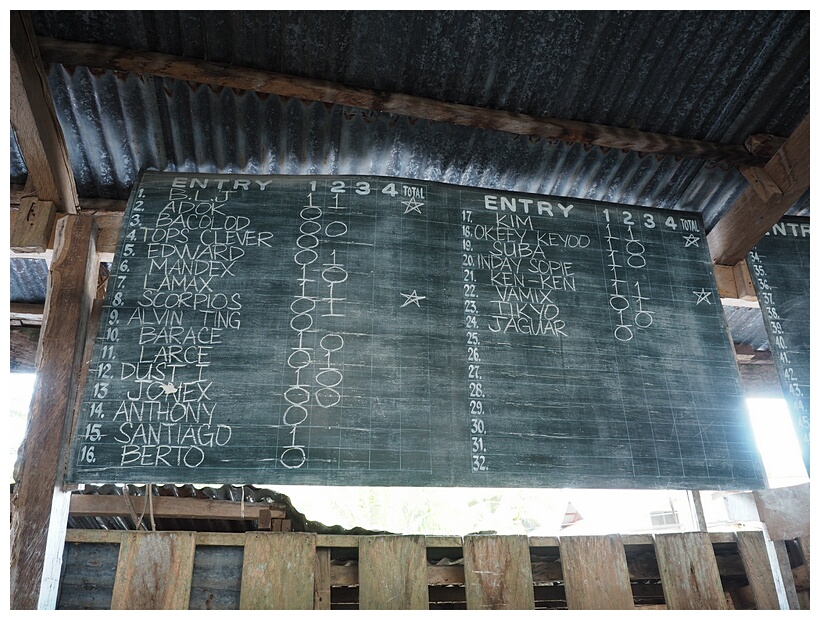 ENTRY 1 2 3 4 TOTAL
1. B.L.J 1 1 ☆
2. APOK O
3. BACOLOD O O
4. TOPS CLEVER 1
5. EDWARD O 1
6. MANDEX 1 O
7. LAMAX 1 1 ☆
8. SCORPIOS O 1
9. ALVIN TING O
10. BARACE 1 O
11. LARCE O 1
12. DUST I 1 O
13 JOMEX O O
14. ANTHONY O
15. SANTIAGO 1
16. BERTO O
ENTRY 1 2 3 4 TOTAL
17. KIM 1 1
18. OKEEY KEYOO 1 1 ☆
19. SUBA 1 O
20. INDAY SOPIE 1 O
21. KEN-KEN 1
22. YAMIX 1 1 ☆
23. TIKYO O 1
24. JAGUAR O O
25.
26.
27.
28.
29.
30.
31.
32.
ENTR
34.
35.
36.
37.
38.
39.
40.
41.
42.
43.
44.